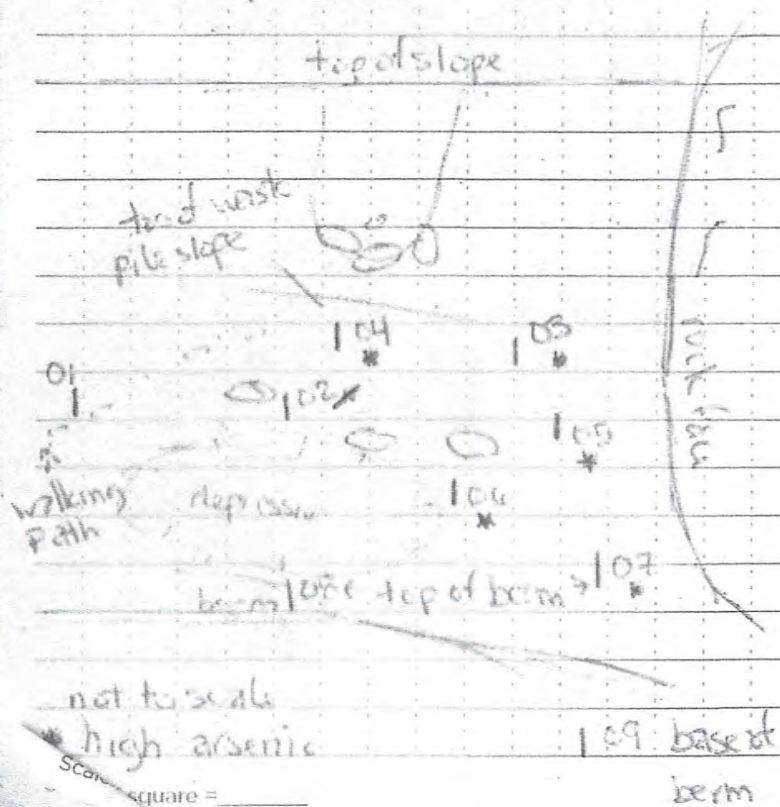 top of slope
toe of waste
pile slope
04
03
01
02
05
walking
path
depression
06
berm 08 top of berm 07
not to scale
* high arsenic
09 base of
berm
square =